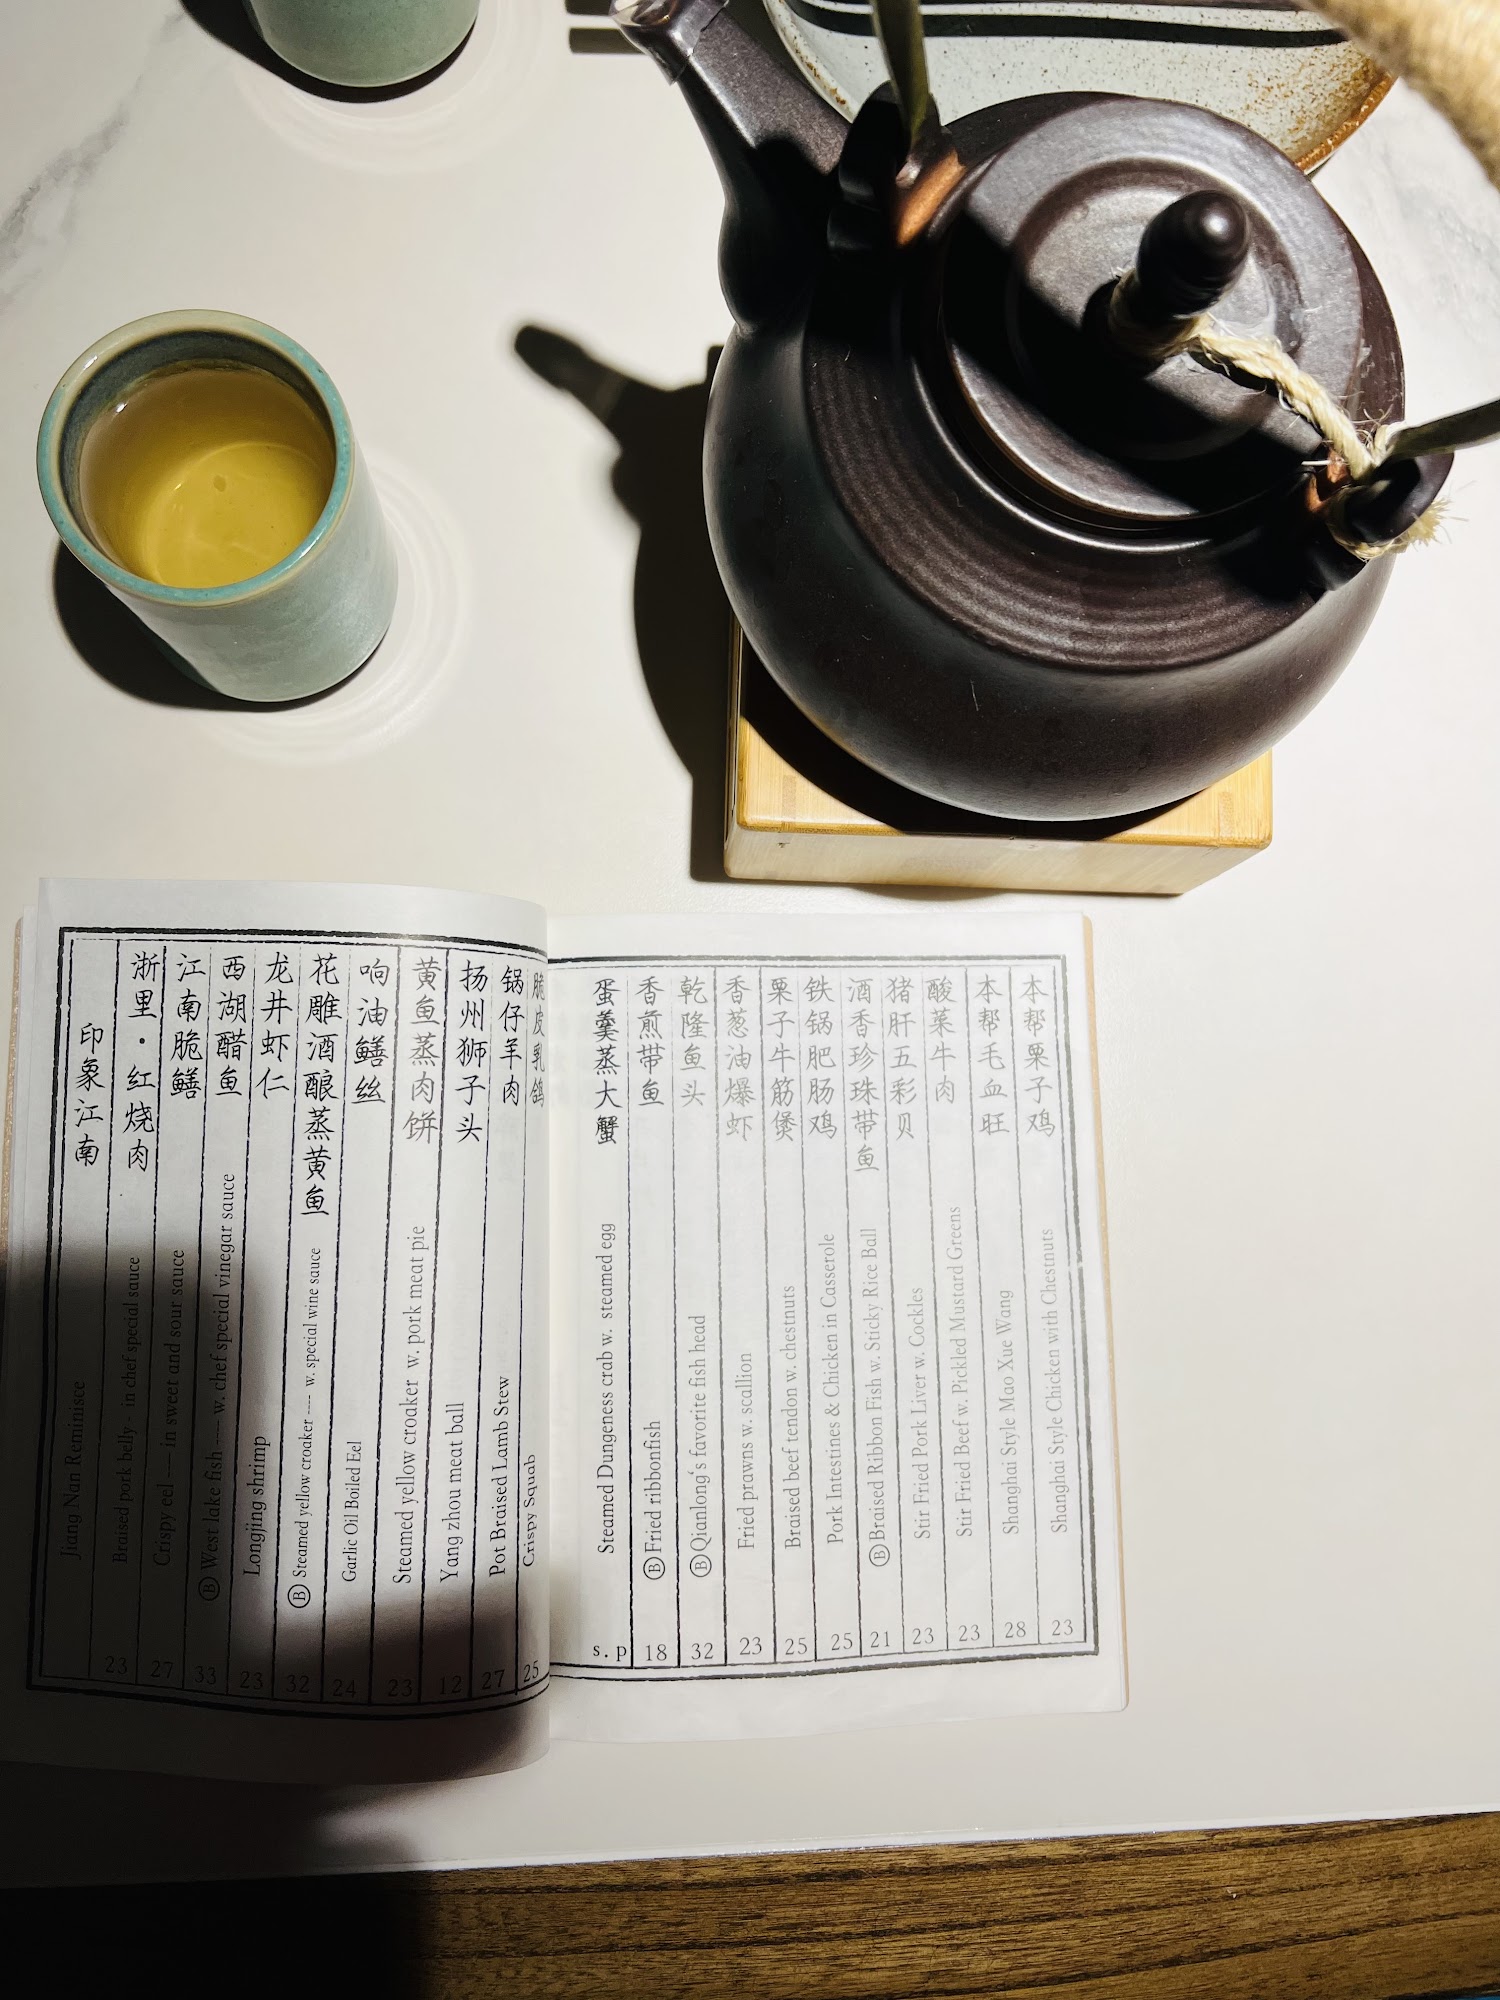 印象江南
Jiang Nan Reminisce
浙里·红烧肉
Braised pork belly - in chef special sauce
23
江南脆鳝
Crispy eel --- in sweet and sour sauce
27
西湖醋鱼
Ⓑ West lake fish --- w. chef special vinegar sauce
33
龙井虾仁
Longjing shrimp
23
花雕酒酿蒸黄鱼
Ⓑ Steamed yellow croaker --- w. special wine sauce
32
响油鳝丝
Garlic Oil Boiled Eel
24
黄鱼蒸肉饼
Steamed yellow croaker w. pork meat pie
23
扬州狮子头
Yang zhou meat ball
12
锅仔羊肉
Pot Braised Lamb Stew
27
脆皮乳鸽
Crispy Squab
25
蛋羹蒸大蟹
Steamed Dungeness crab w. steamed egg
s.p
香煎带鱼
Ⓑ Fried ribbonfish
18
乾隆鱼头
Ⓑ Qianlong's favorite fish head
32
香葱油爆虾
Fried prawns w. scallion
23
栗子牛筋煲
Braised beef tendon w. chestnuts
25
铁锅肥肠鸡
Pork Intestines & Chicken in Casserole
25
酒香珍珠带鱼
Ⓑ Braised Ribbon Fish w. Sticky Rice Ball
21
猪肝五彩贝
Stir Fried Pork Liver w. Cockles
23
酸菜牛肉
Stir Fried Beef w. Pickled Mustard Greens
23
本帮毛血旺
Shanghai Style Mao Xue Wang
28
本帮栗子鸡
Shanghai Style Chicken with Chestnuts
23